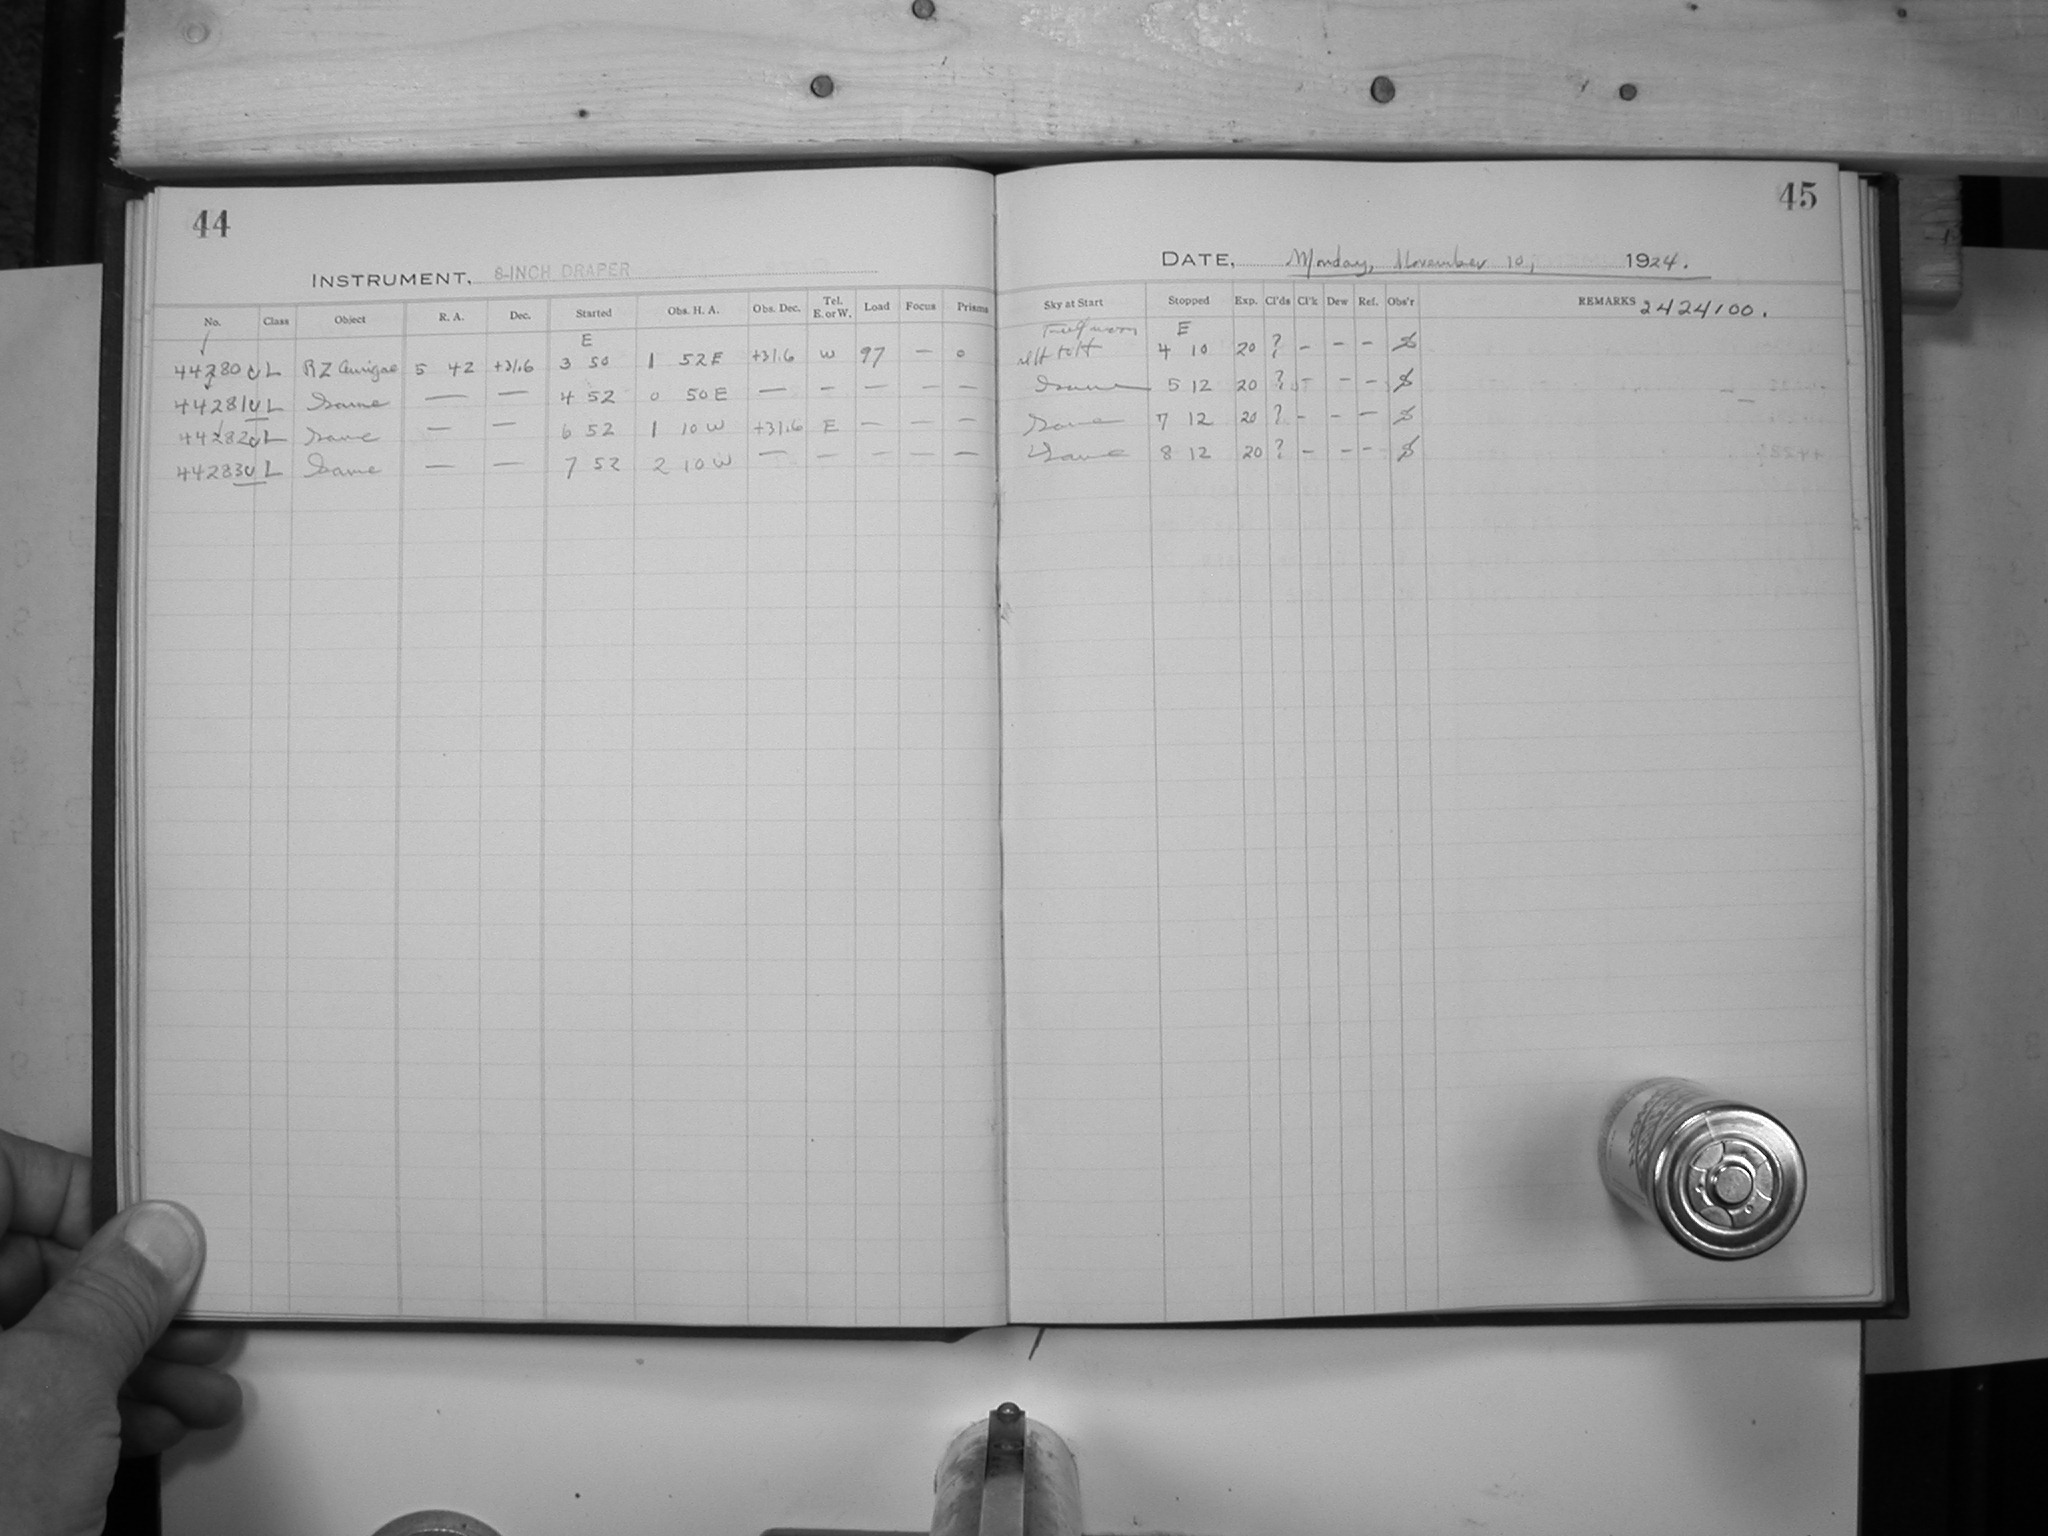 44
INSTRUMENT, 8-INCH DRAPER
No. Class Object R. A. Dec. Started Obs. H. A. Obs. Dec. Tel. E. or W. Load Focus Prisms
E
44280 L RZ Aurigae 5 42 +31.6 3 50 1 52 E +31.6 W 97 — 0
44281 L Same — — 4 52 0 50 E — — — — —
44282 L Same — — 6 52 1 10 W +31.6 E — — —
44283 L Same — — 7 52 2 10 W — — — — —
45
DATE, Monday, November 10, 1924.
Sky at Start Stopped Exp. Cl'ds Cl'k Dew Ref. Obs'r REMARKS 2424100.
moon E
4 10 20 ? – – –
Same 5 12 20 ? – – –
Same 7 12 20 ? – – –
Same 8 12 20 ? – – –